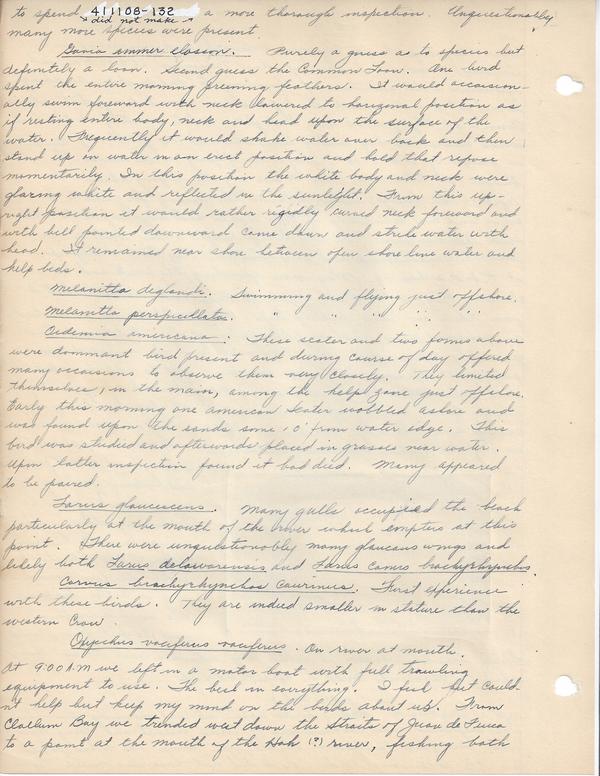 to spend a more thorough inspection. Unquestionably
411108-132
did not make
many more species were present.
Gavia immer elasson. Purely a guess as to species but
definitely a loon. Second guess the Common Loon. One bird
spent the entire morning preening feathers. It would occasion-
ally swim foreward with neck lowered to horizonal position as
if resting entire body, neck and head upon the surface of the
water. Frequently it would shake water over back and then
stand up on water in an erect position and hold that repose
momentarily. In this position the white body and neck were
glaring white and reflected in the sunlight. From this up-
right position it would rather rigidly curved neck foreward and
with bill pointed downward come down and strike water with
head. It remained near shore between open shore line water and
kelp beds.
Melanitta deglandi. Swimming and flying just offshore.
Melanitta perspicillata. " " " " "
Oidemia americana. These scoter and two formes above
were dominant bird present and during course of day offered
many occaisions to observe them very closely. They limited
themselves, in the main, among the kelp zone just offshore.
Early this morning one american scoter wobbled ashore and
was found upon the sands some 10' from water edge. This
bird was studied and afterwords placed in grasses near water.
Upon latter inspection found it had died. Many appeared
to be paired.
Larus glaucescens. Many gulls occupied the beach
particularly at the mouth of the river which empties at this
point. There were unquestionably many glaucous wings and
likely both Larus delawarensis and Larus canus brachyrhynchos.
Corvus brachyrhynchos caurinus. First experience
with these birds. They are indeed smaller in stature than the
western Crow.
Oxyechus vociferus vociferus. On river at mouth.
At 9:00 A.M we left in a motor boat with full trawling
equipment to use. The best in everything. I fish but could-
n't help but keep my mind on the birds about us. From
Clallum Bay we trended west down the Straits of Juan de Fuca
to a point at the mouth of the Hoh (?) river, fishing both